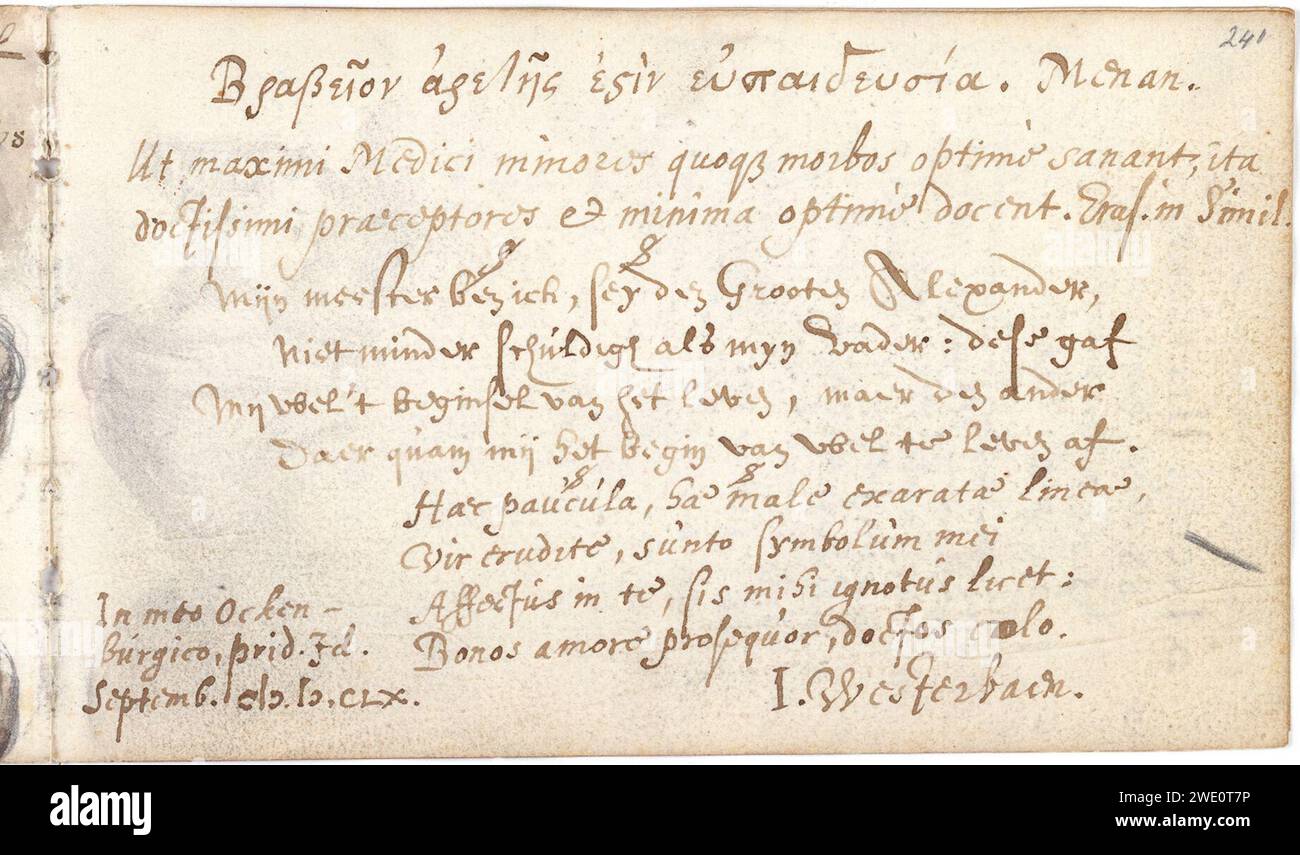 241
Βραβεῖον ἀρετῆς ἐςὶν εὐπαιδευσία. Menan.
Ut maximi Medici minores quoqꝫ morbos optimè sanant, ita
doctissimi præceptores & minima optimè docent. Eras. in Simil.
Mijn meester ben ick, sey den Grooten Alexander,
Niet minder schuldigh als myn Vader: dese gaf
Mij wel't beginsel van het leven, maer den ander
Daer quam mij het begin van wel te leven af.
Hæc paucula, hæ male exaratæ lineæ,
Vir erudite, sunto symbolum mei
Affectus in te, sis mihi ignotus licet:
Bonos amore prosequor, doctos colo.
In meo Ocken-
burgico, prid. Id.
Septemb. cIↄ.Iↄ.CLX.
I. Westerbaen.
alamy
Image ID: 2WE0T7P
www.alamy.com